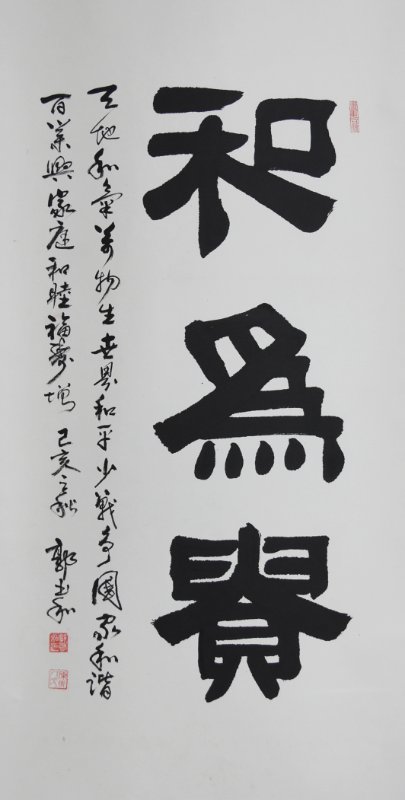 和爲貴
天地和氣萬物生世界和平少戰爭國家和諧
百業興家庭和睦福壽增 己亥之秋 郭